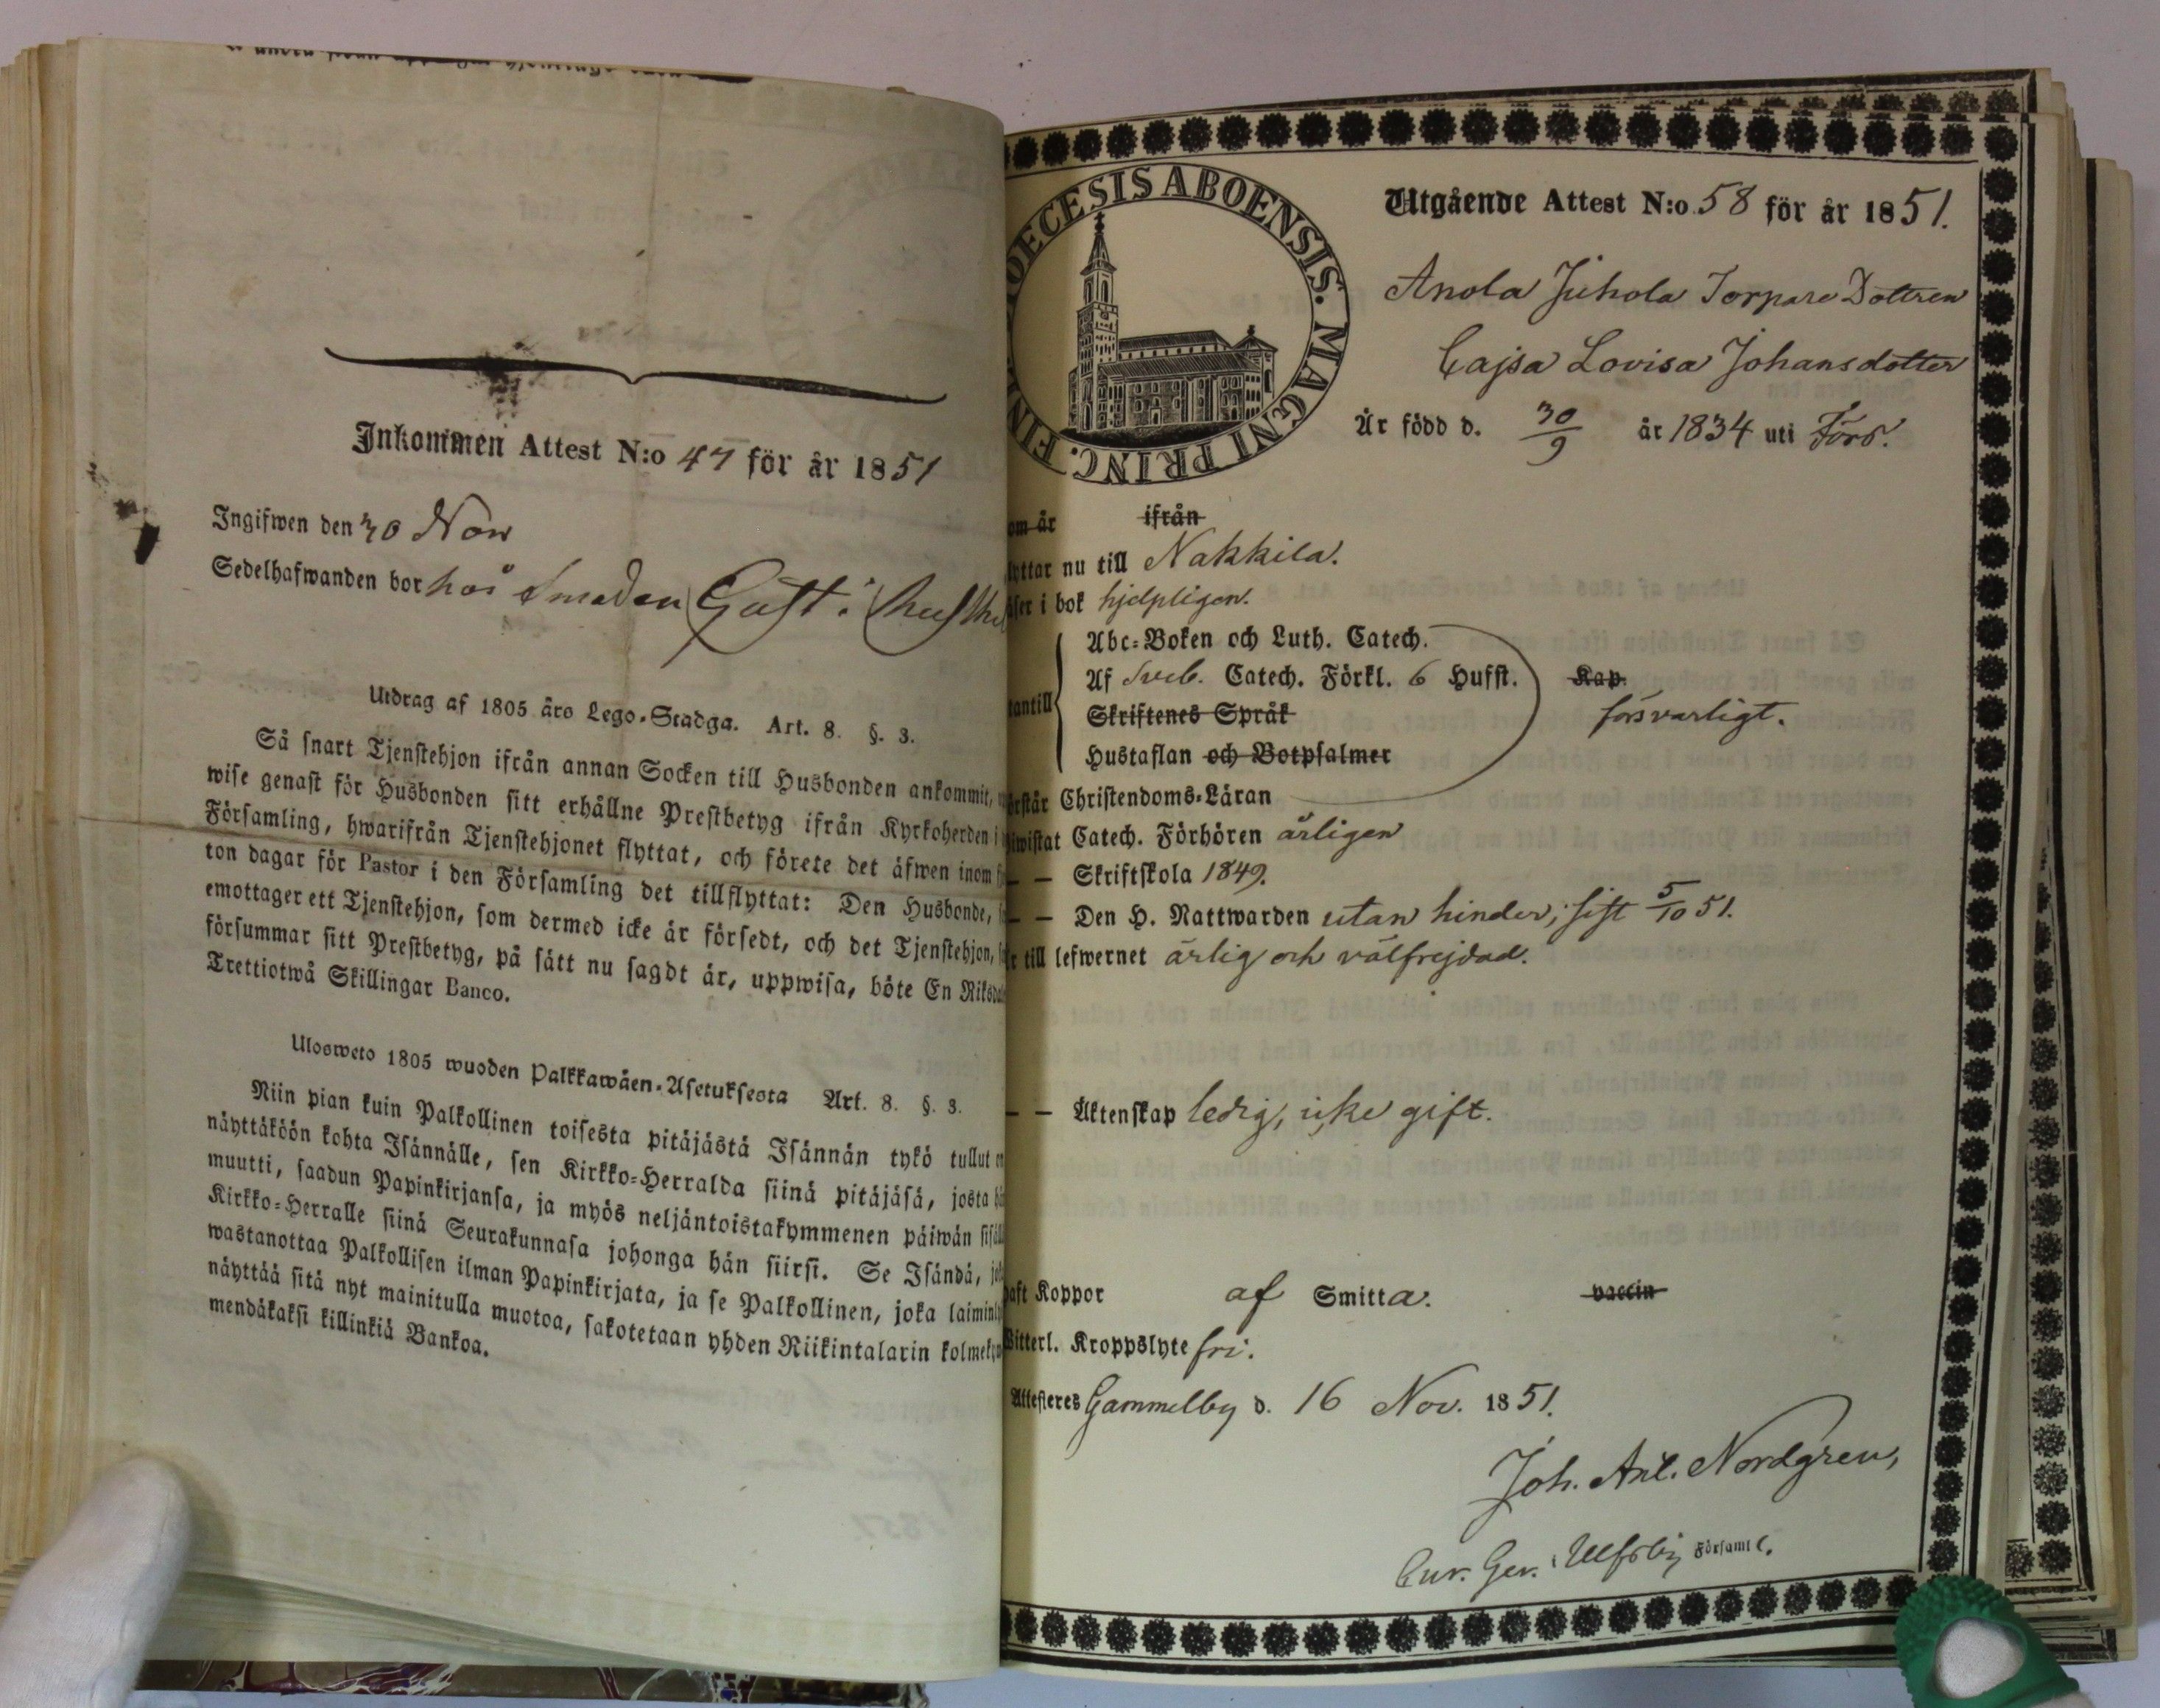 Inkommen Attest N:o 47 för år 1851
Ingifwen den 30 Nov
Sedelhafwanden bor hos Smeden Gast i
Utdrag af 1805 års Lego-Stadga. Art. 8. §. 3.
Så snart Tjenstehjon ifrån annan Socken till Husbonden ankommit,
wise genast för Husbonden sitt erhållne Prestbetyg ifrån Kyrkoherden i
Församling, hwarifrån Tjenstehjonet flyttat, och förete det äfwen inom
ton dagar för Pastor i den Församling det tillflyttat: Den Husbonde,
emottager ett Tjenstehjon, som dermed icke är försedt, och det Tjenstehjon,
försummar sitt Prestbetyg, på sätt nu sagdt är, uppwisa, böte En Riksda
Trettiotwå Skillingar Banco.
Ulosweto 1805 wuoden Palkkawäen-Asetuksesta Art. 8. §. 3.
Niin pian kuin Palkollinen toisesta pitäjästä Isännän tykö tullut on
näyttäköön kohta Isännälle, sen Kirkko-Herralda siinä pitäjäsä, josta hä
muutti, saadun Papinkirjansa, ja myös neljäntoistakymmenen päiwän sisäll
Kirkko-Herralle siinä Seurakunnasa johonga hän siirsi. Se Isändä, jok
wastanottaa Palkollisen ilman Papinkirjata, ja se Palkollinen, joka laiminly
näyttää sitä nyt mainitulla muotoa, sakotetaan yhden Riikintalarin kolmeky
mendäkaksi killinkiä Bankoa.
DIOECESIS ABOENSIS. MAGNI PRINC. FIN
Utgående Attest N:o 58 för år 1851.
Anola Juhola Torpare Dottren
Cajsa Lovisa Johansdotter
Är född d. 30/9 år 1834 uti Förs.
om är ifrån
lyttar nu till Nakkila.
äser i bok hjelpligen.
Abc-Boken och Luth. Catech.
Af Sveb. Catech. Förkl. 6 Hufst. Kap.
tantill Skriftenes Språk försvarligt.
Hustaflan och Botpsalmer
örstår Christendoms-Läran
iwistat Catech. Förhören årligen
— — Skriftskola 1849.
— — Den H. Nattwarden utan hinder; sist 5/10 51.
r till lefwernet ärlig och välfrejdad.
— — Äktenskap ledig, icke gift.
haft Koppor af Smitta. vaccin
Witterl. Kroppslyte fri.
Attesteres Gammelby d. 16 Nov. 1851.
Joh. Ant. Nordgren,
Cur. Ger. i Ulfsby Församl.